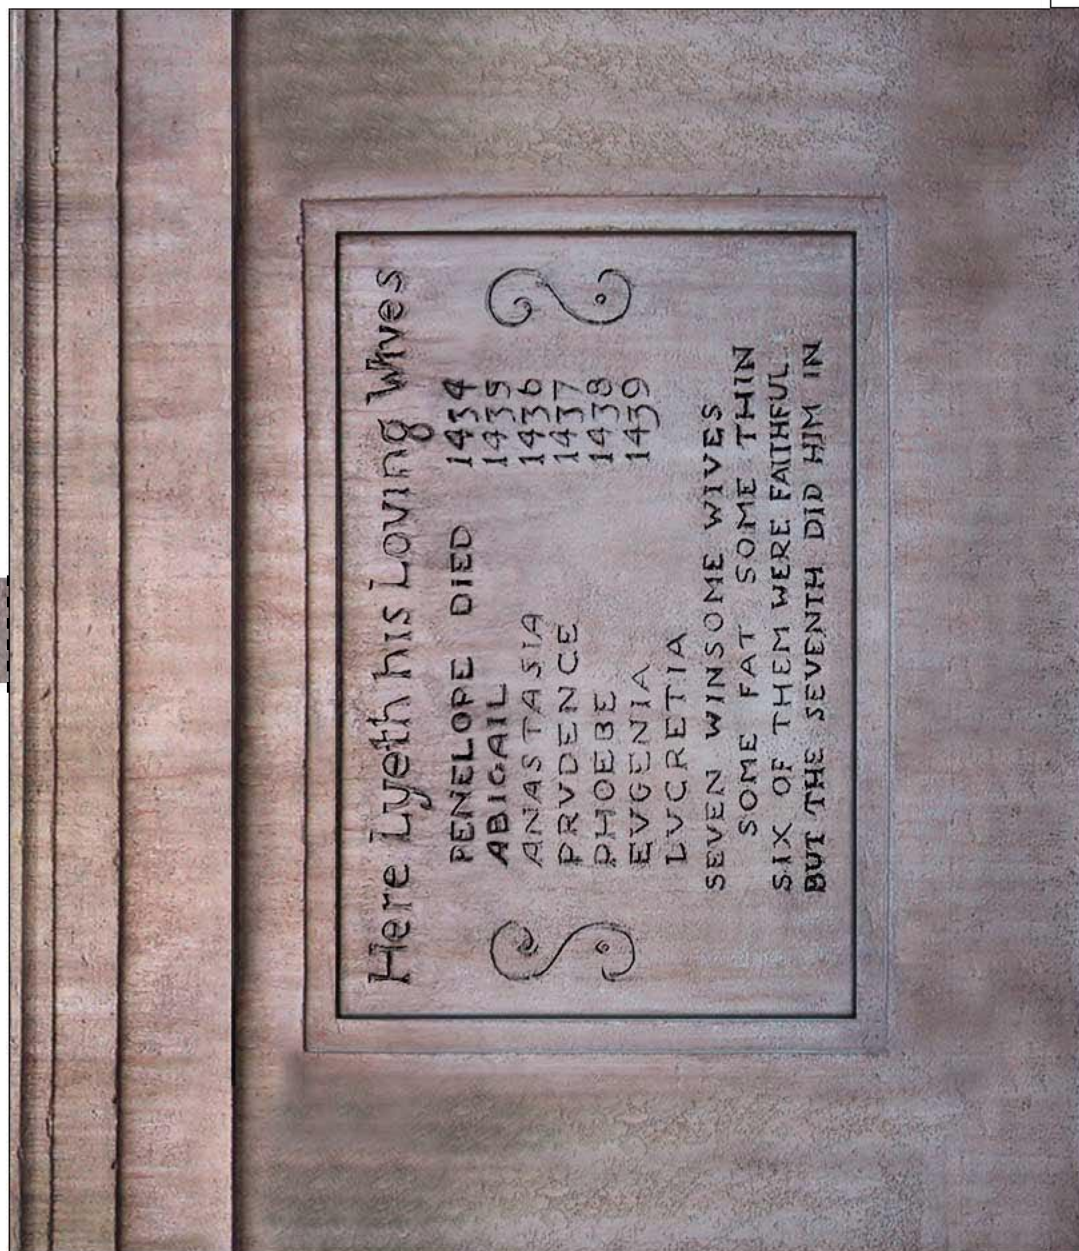 Here Lyeth his Loving Wives
PENELOPE DIED 1434
ABIGAIL 1435
ANASTASIA 1436
PRVDENCE 1437
PHOEBE 1438
EVGENIA 1439
LVCRETIA
SEVEN WINSOME WIVES
SOME FAT SOME THIN
SIX OF THEM WERE FAITHFUL
BUT THE SEVENTH DID HIM IN